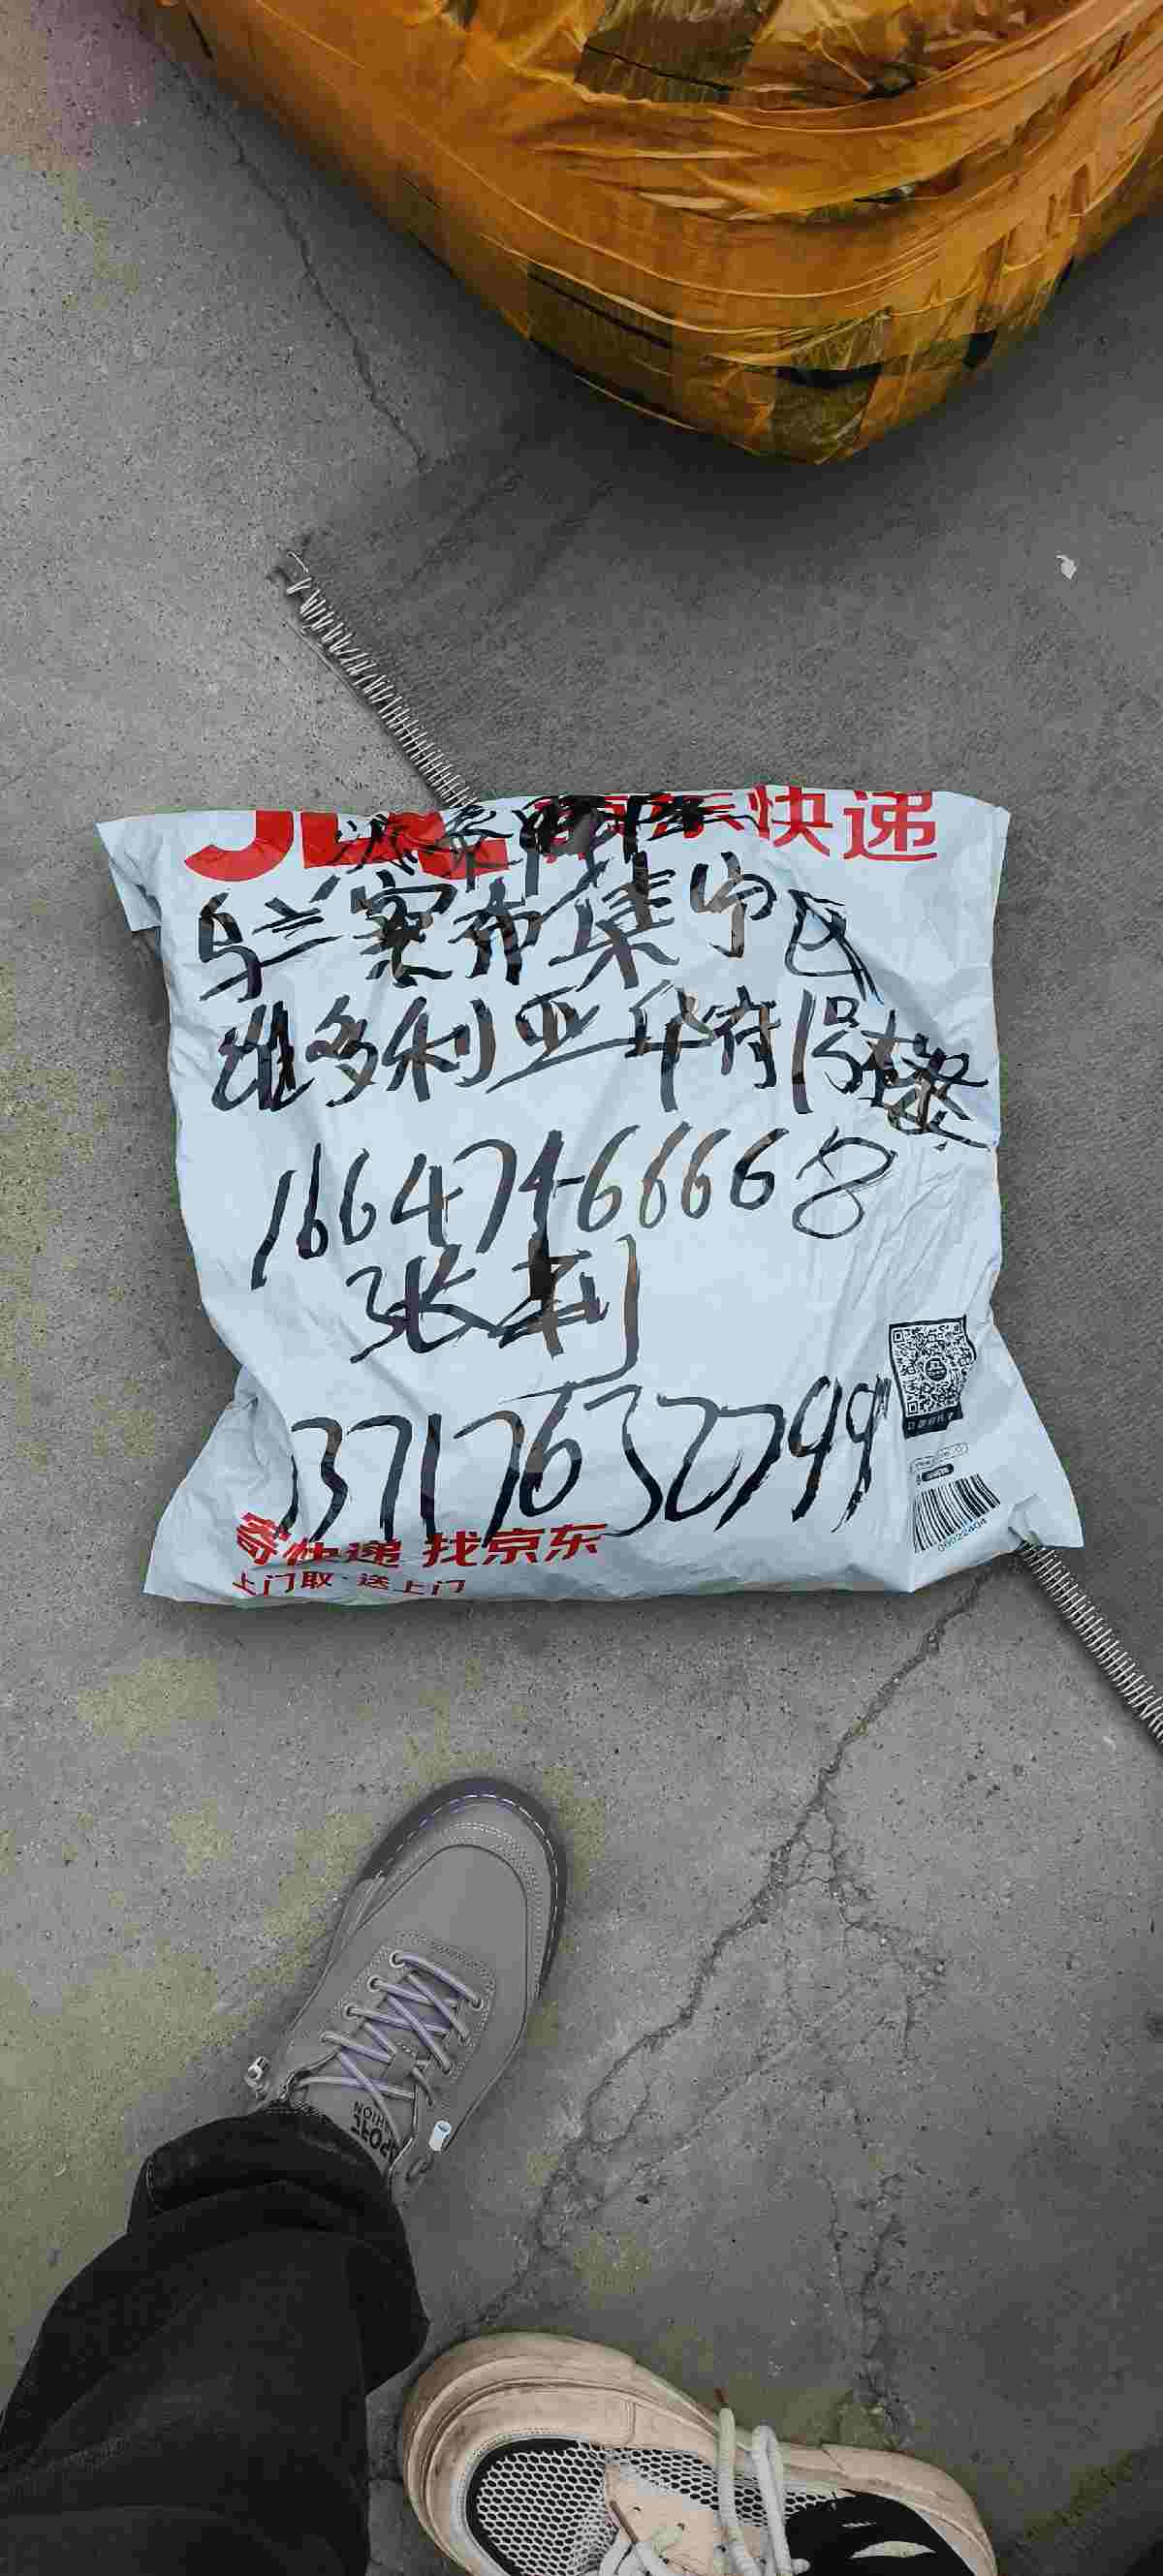 京东快递
乌兰察布集宁区
维多利亚华府1号楼
16647466668
张利
13717630799
寄快递 找京东
上门取·送上门
06022404
SPORT
FASHION